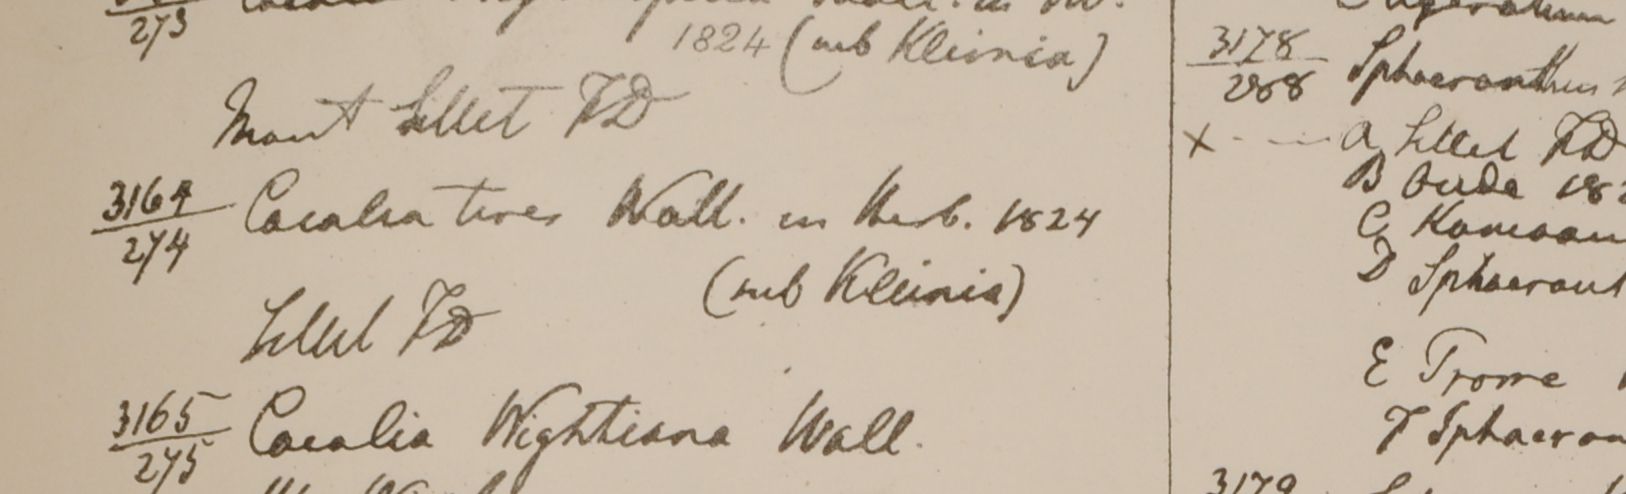 273
1824 (sub Kleinia)
Mont Sillet FD
3164 Cacalia Wall. in Herb. 1824
274
(sub Kleinia)
Sillet FD
3165 Cacalia Wightiana Wall.
275
3178 Sphaeranthus
288
x - - - A Sillet FD
B Oude 182
C Kamaon
D Sphaerant
E Prome
F Sphaeran
3179